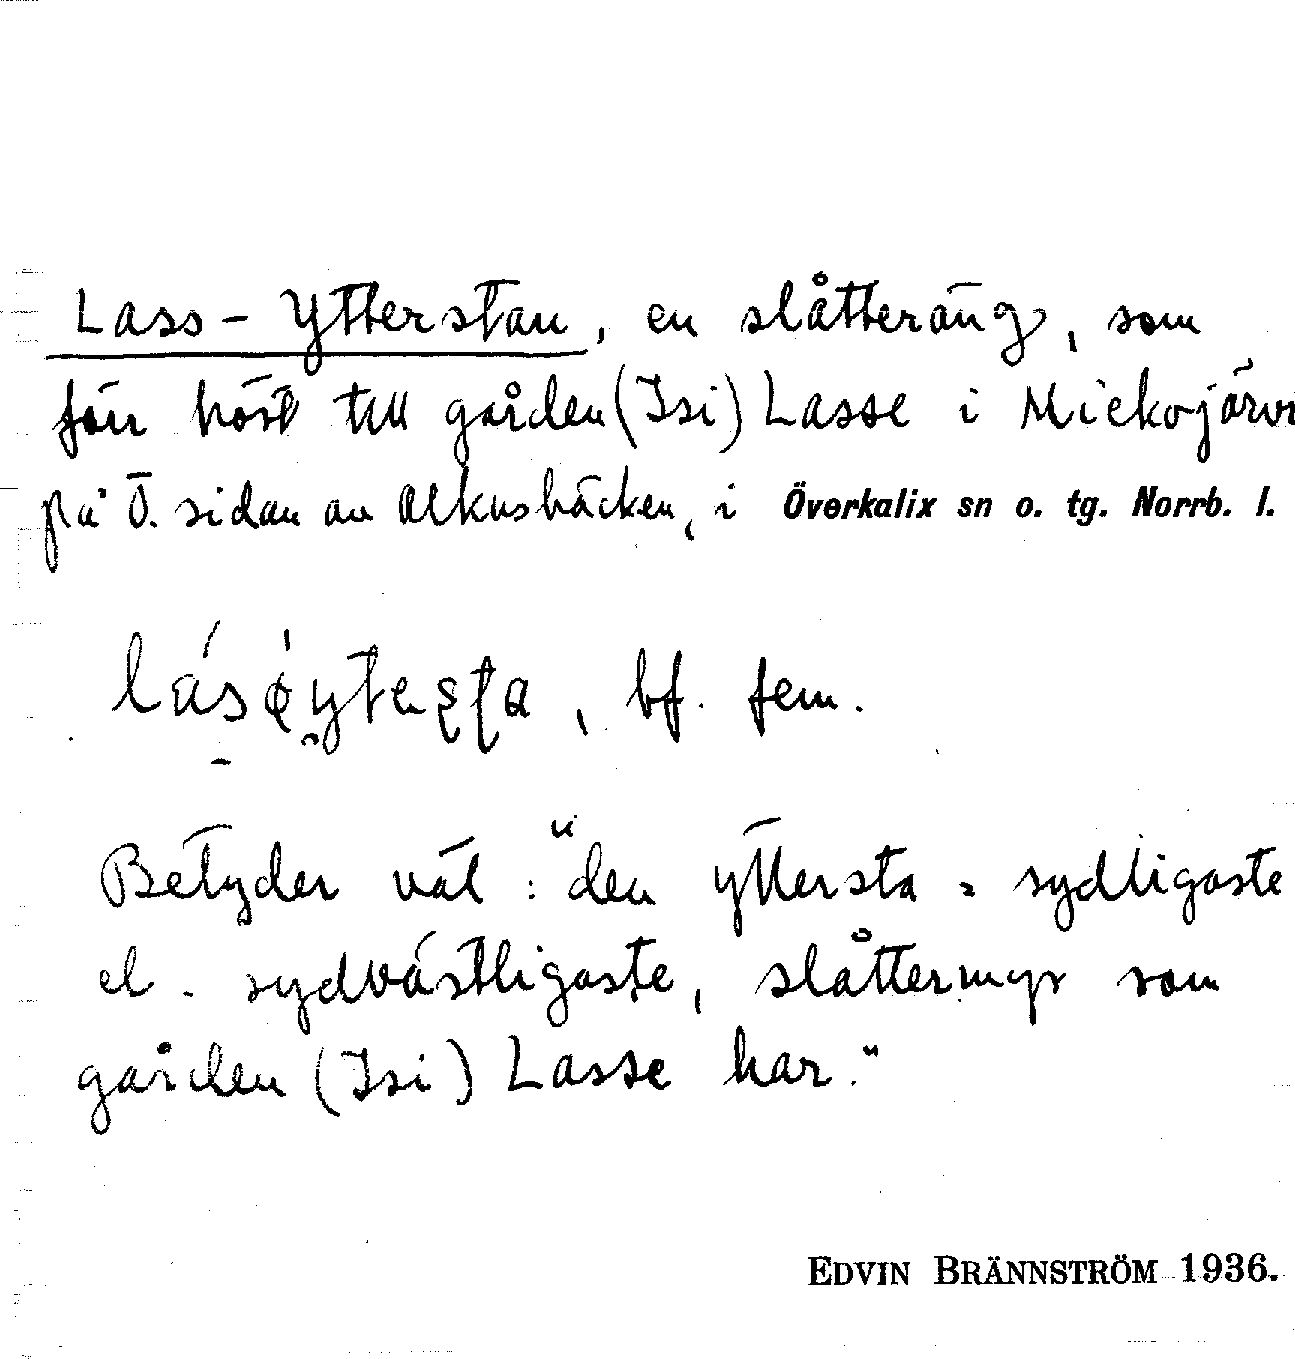 Lass-Ytterstan, en slåtteräng, som
förr hört till gården (Isi) Lasse i Mickojärvi
på Ö. sidan av Alkusbäcken, i Överkalix sn o. tg. Norrb. l.
bf. fem.
Betyder väl: "den yttersta = sydligaste
el. sydvästligaste, slåttermyr som
gården (Isi) Lasse har."
EDVIN BRÄNNSTRÖM 1936.